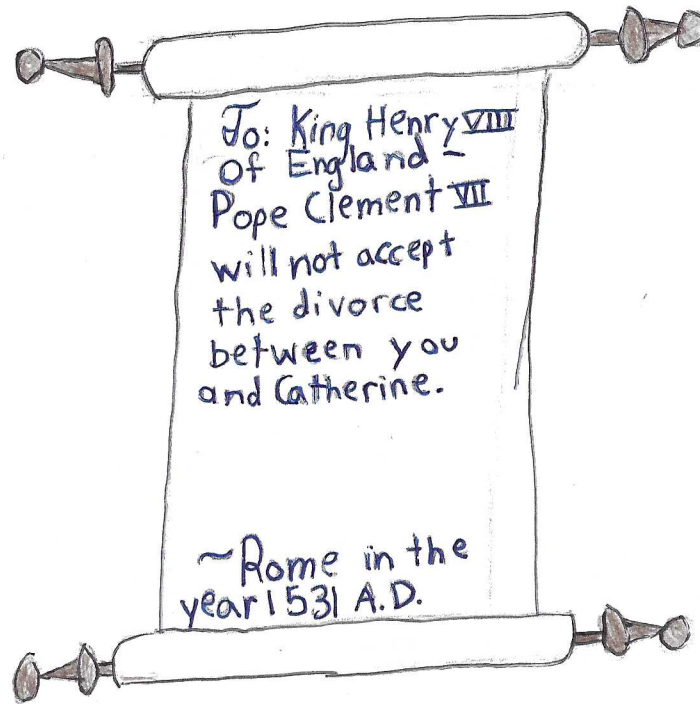 To: King Henry VIII
Of England -
Pope Clement VII
will not accept
the divorce
between you
and Catherine.
~Rome in the
year 1531 A.D.